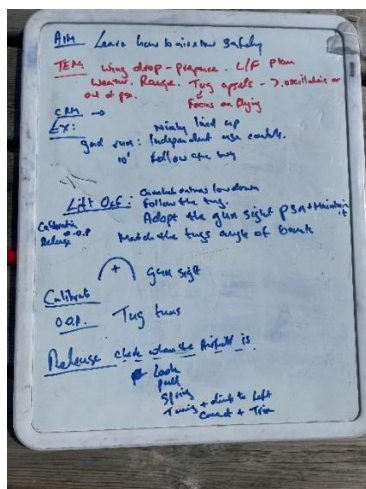 AIM Learn how to airtow safely
TEM: Wing drop - prepare. L/F Plan
Weather. Range. Tug upsets - >, oscillations or
out of psn. Focus on flying
CRM →
EX: Nicely lined up
gnd run: Independent use controls.
10' follow the tug
Lift Off: low down
Follow the tug.
Adopt the gun sight psn + Maintain it
Calibration
O.O.P
Release
Match the tugs angle of bank
+ gun sight
Calibrat
O.O.P. Tug turns
Release check where the Airfield is.
Look
pull
Spring
Turning + climb to left
+ Trim